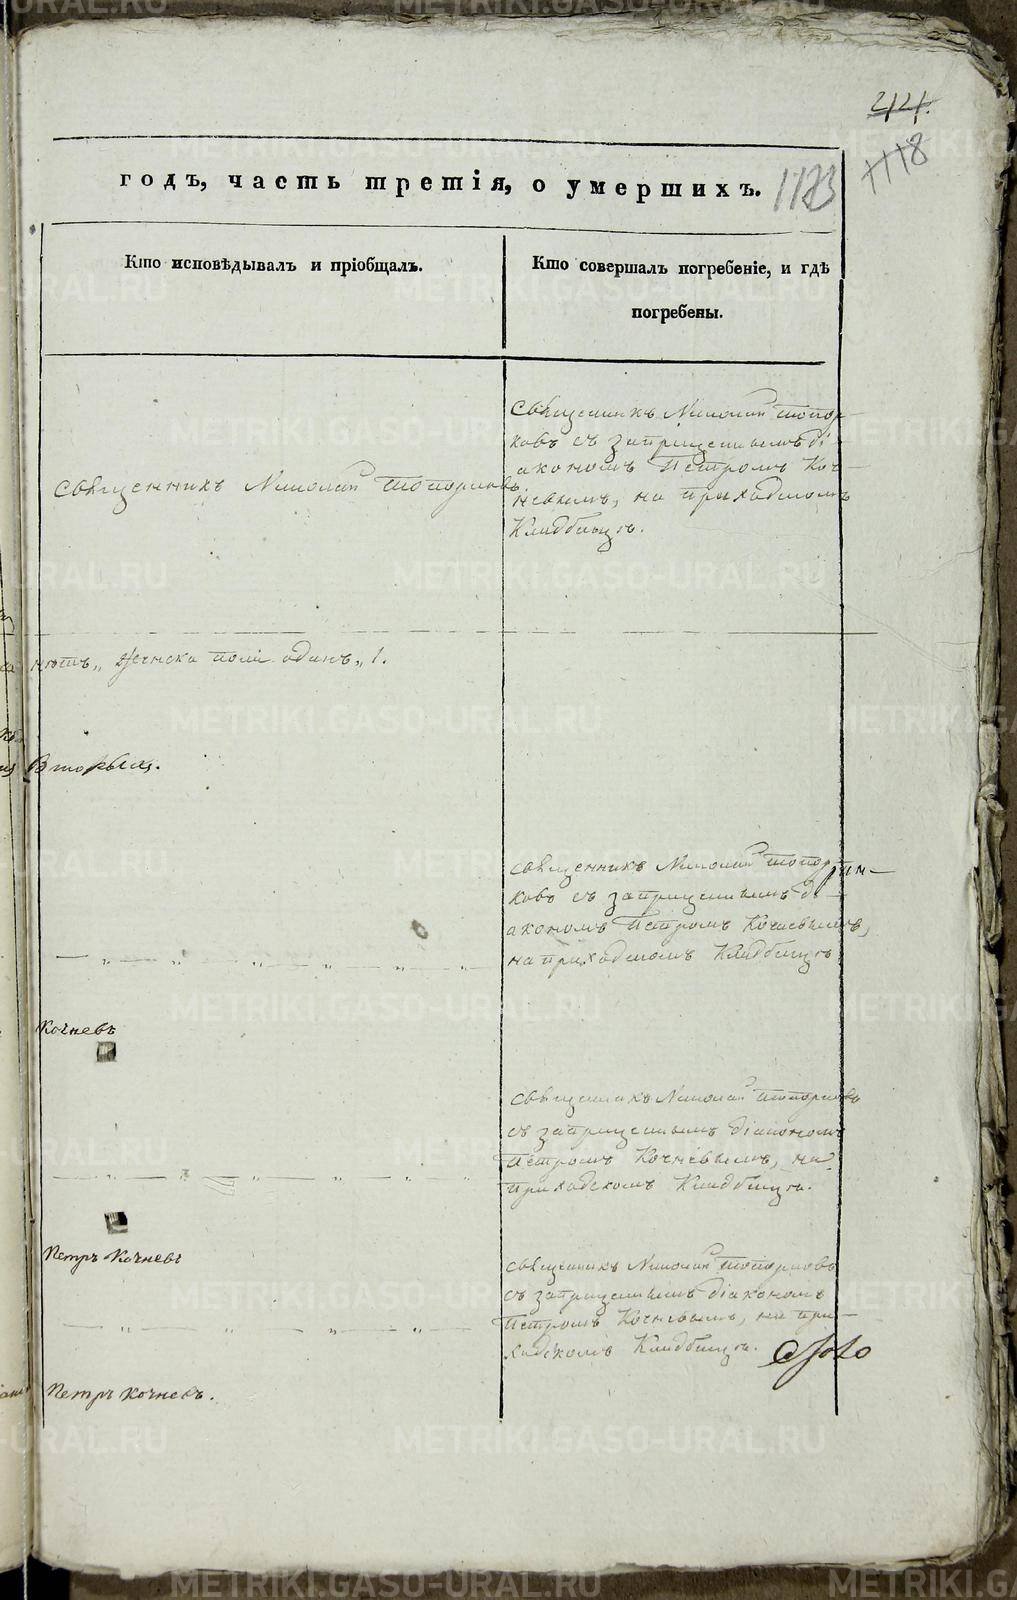 424.
1118
1123
годъ, часть третія, о умершихъ.
Кто исповѣдывалъ и пріобщалъ.
Кто совершалъ погребеніе, и гдѣ
погребены.
Священникъ Николай Топорковъ
Священникъ Николай Топор-
ковъ съ запрещеннымъ ді-
акономъ Петромъ Коч-
невымъ, на приходскомъ
Кладбищѣ.
нѣтъ„ Женска пола одинъ„ 1.
Вторыхъ.
Священникъ Николай Топор
ковъ съ запрещеннымъ ді-
акономъ Петромъ Кочневымъ,
на приходскомъ Кладбищѣ
Кочневъ
Священникъ Николай Топорковъ
съ запрещеннымъ діакономъ
Петромъ Кочневымъ, на
приходскомъ Кладбищѣ.
Петръ Кочневъ
Священникъ Николай Топорковъ
съ запрещеннымъ діакономъ
Петромъ Кочневымъ, на при-
ходскомъ Кладбищѣ.
Петръ Кочневъ.
METRIKI.GASO-URAL.RU